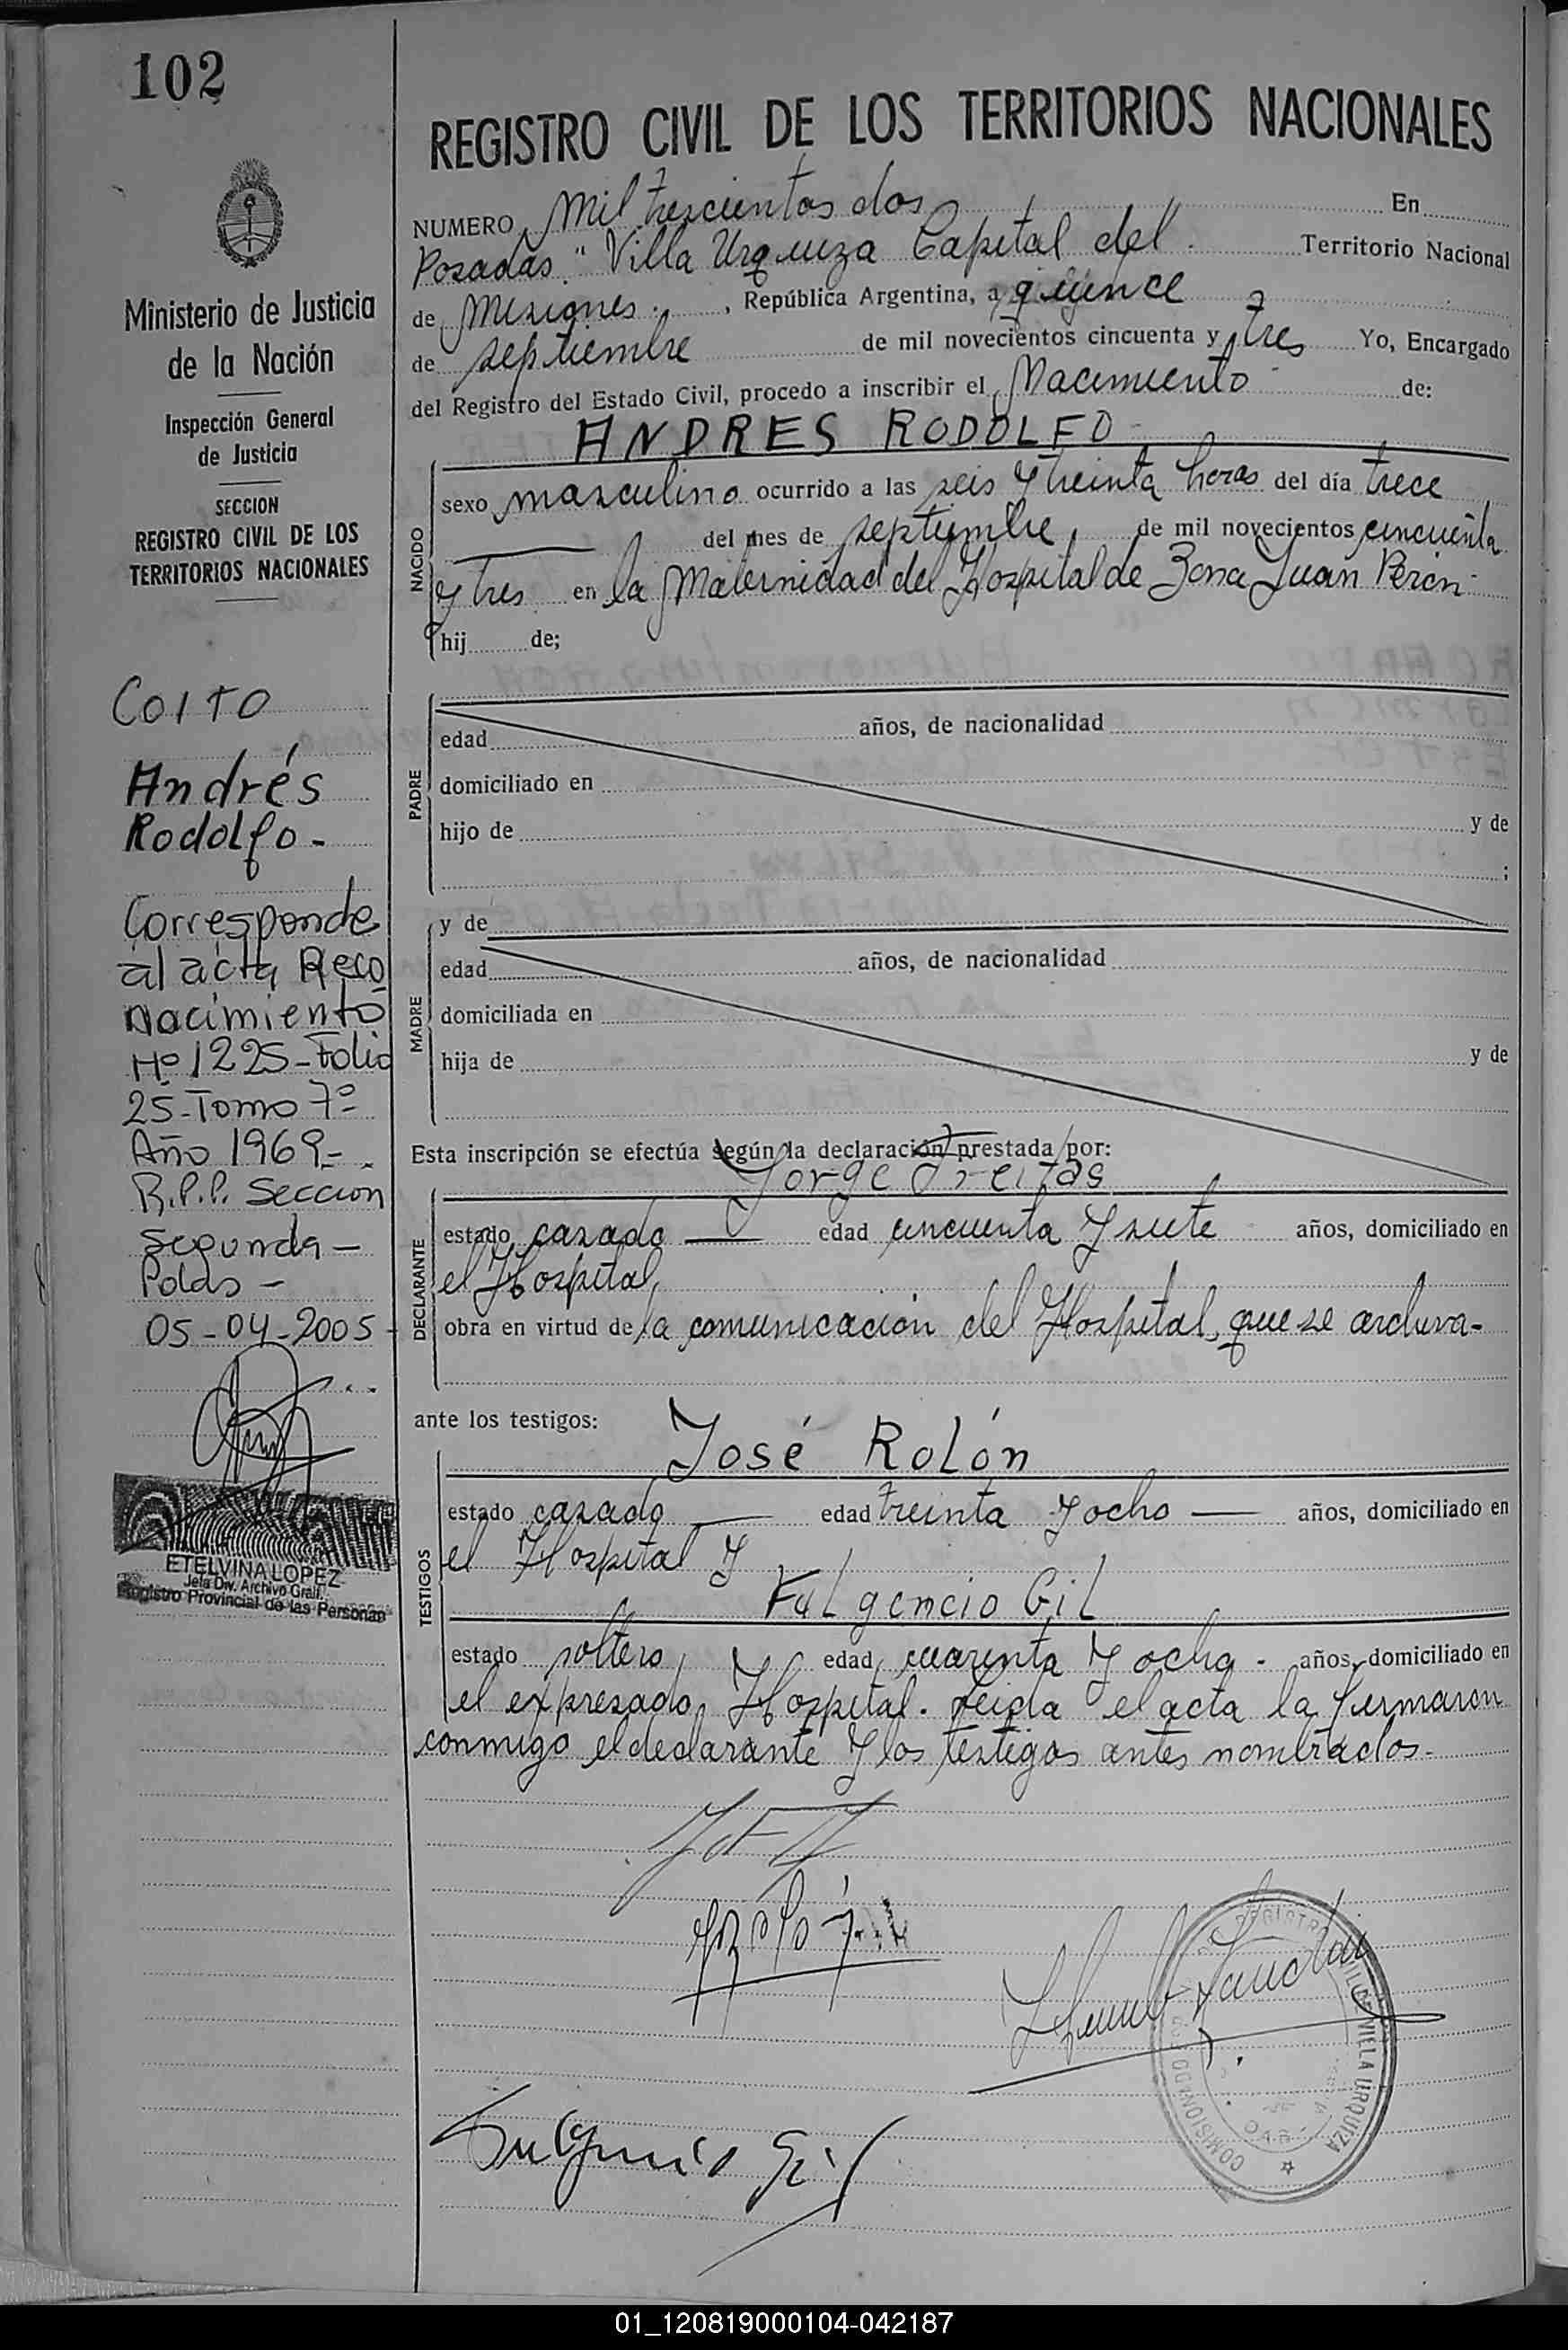 102
REGISTRO CIVIL DE LOS TERRITORIOS NACIONALES
Ministerio de Justicia
de la Nación
Inspección General
de Justicia
SECCION
REGISTRO CIVIL DE LOS
TERRITORIOS NACIONALES
COITO
Andrés
Rodolfo -
Corresponde
al acta Reco
nocimiento
Nº 1225 - Folio
25 - Tomo 7º
Año 1969 -
R.P.P. Seccion
Segunda -
Pdas -
05 - 04 - 2005 -
ETELVINA LOPEZ
Jefa Div. Archivo Gral.
Registro Provincial de las Personas
NUMERO Mil trescientos dos En
Posadas "Villa Urquiza Capital del Territorio Nacional
de Misiones , República Argentina, a quince
de septiembre de mil novecientos cincuenta y tres Yo, Encargado
del Registro del Estado Civil, procedo a inscribir el Nacimiento de:
ANDRES RODOLFO -
NACIDO
sexo masculino ocurrido a las seis y treinta horas del día trece
del mes de septiembre de mil novecientos cincuenta
y tres en la Maternidad del Hospital de Zona Juan Perón
hij de;
PADRE
edad años, de nacionalidad
domiciliado en
hijo de y de
;
MADRE
y de
edad años, de nacionalidad
domiciliada en
hija de y de
Esta inscripción se efectúa según la declaración prestada por:
Jorge Freitas
DECLARANTE
estado casado edad cincuenta y siete años, domiciliado en
el Hospital,
obra en virtud de la comunicación del Hospital, que se archiva -
ante los testigos:
José Rolón
TESTIGOS
estado casado edad treinta y ocho años, domiciliado en
el Hospital y
Fulgencio Gil
estado soltero, edad cuarenta y ocho - años, domiciliado en
el expresado Hospital. Leida el acta la firmaron
conmigo el declarante y los testigos antes nombrados -
Fulgencio Gil
VILLA URQUIZA
01_120819000104-042187